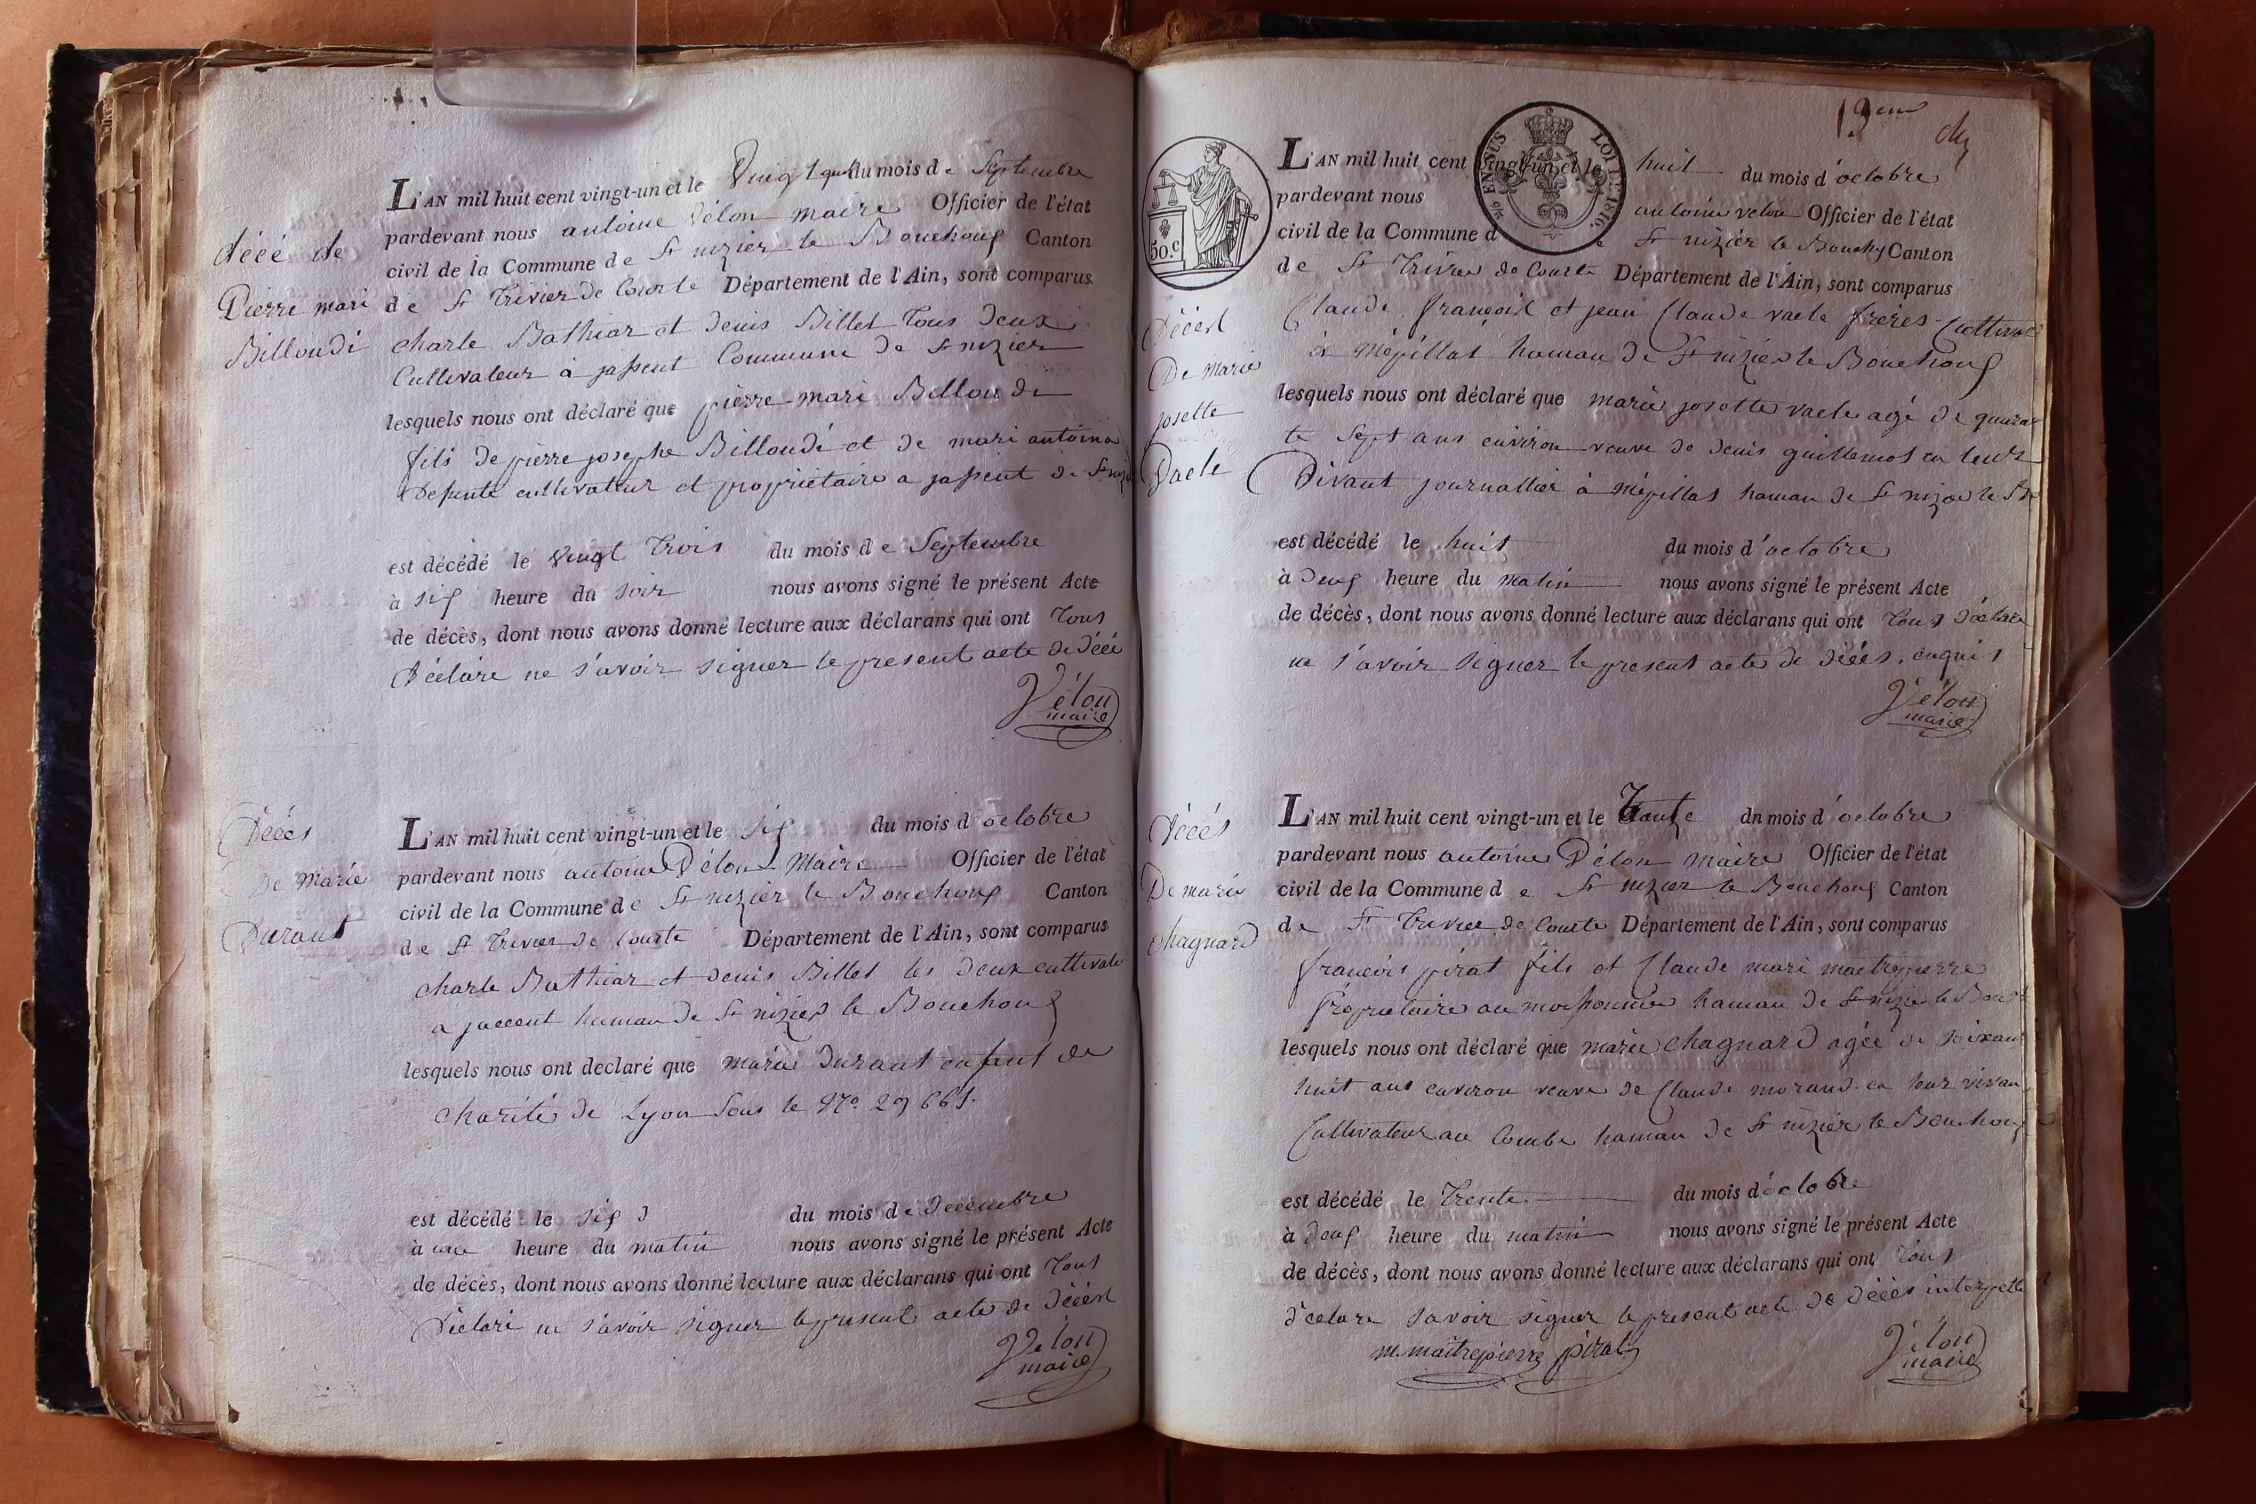 L'AN mil huit cent vingt-un et le Vingt du mois de Septembre
pardevant nous antoine Vélon maire Officier de l'état
civil de la Commune de St nizier le Bouchoux Canton
de St Trivier de Courte Département de l'Ain, sont comparus
charle Bathiar et denis Billet tous deux
Cultivateur à jassent Commune de St nizier
lesquels nous ont déclaré que pierre mari Billoudi
fils de pierre josephe Billoudi et de mari antoina
cultivateur et propriétaire a jassent de St
est décédé le vingt trois du mois de Septembre
à six heure du soir nous avons signé le présent Acte
de décès, dont nous avons donné lecture aux déclarans qui ont Tous
déclare ne s'avoir signer le present acte de décé
Vélon
maire
décé de
Pierre mari
Billoudi
L'AN mil huit cent vingt-un et le six du mois d'octobre
pardevant nous antoine Vélon Maire Officier de l'état
civil de la Commune de St nizier le Bouchoux Canton
de St Trivier de Courte Département de l'Ain, sont comparus
charle Bathiar et denis Billet les deux cultivate
a jaccent haman de St nizier le Bouchoux
lesquels nous ont declaré que marie Durant enfant de
charité de Lyon sous le No 29 661.
est décédé le six du mois de decembre
à une heure du matin nous avons signé le présent Acte
de décès, dont nous avons donné lecture aux déclarans qui ont Tous
déclaré ne s'avoir signer le present acte de décés
Vélon
maire
Décés
De Marie
Durant
13eme
ENSUS LOI DE 1816.
50.c
L'AN mil huit cent vingt-un et le huit du mois d'octobre
pardevant nous antoine velon Officier de l'état
civil de la Commune de St nizier le Bouchx Canton
de St Trivier de Courte Département de l'Ain, sont comparus
Claude françois et jean Claude vacle frères Cultivat
à Mépillat haman de St nizier le Bouchoux
lesquels nous ont déclaré que marie josette vacle agé de quaran
te sept ans environ veuve de denis guillemot en leur
vivant journallier à mépillat haman de St nizier le
est décédé le huit du mois d'octobre
à deux heure du matin nous avons signé le présent Acte
de décès, dont nous avons donné lecture aux déclarans qui ont Tous déclare
ne s'avoir signer le present acte de décés. enquis
Vélon
maire
Décés
De Marie
josette
Vacle
L'AN mil huit cent vingt-un et le Trante dn mois d'octobre
pardevant nous antoine Vélon maire Officier de l'état
civil de la Commune de St nizier le Bouchoux Canton
de St Trivier de Courte Département de l'Ain, sont comparus
françois pirat fils et Claude mari maitrepierre
propriétaire au haman de St nizier le Bou
lesquels nous ont déclaré que marie chagnard agée de soixant
huit ans environ veuve de Claude morand en leur vivan
Cultivateur au Combe haman de St nizier le Bouchoux
est décédé le Trente du mois d'octobre
à deux heure du matin nous avons signé le présent Acte
de décès, dont nous avons donné lecture aux déclarans qui ont Tous
déclare savoir signer le present acte de décès
m. maitrepierre pirat
Vélon
maire
Décés
De marie
chagnard